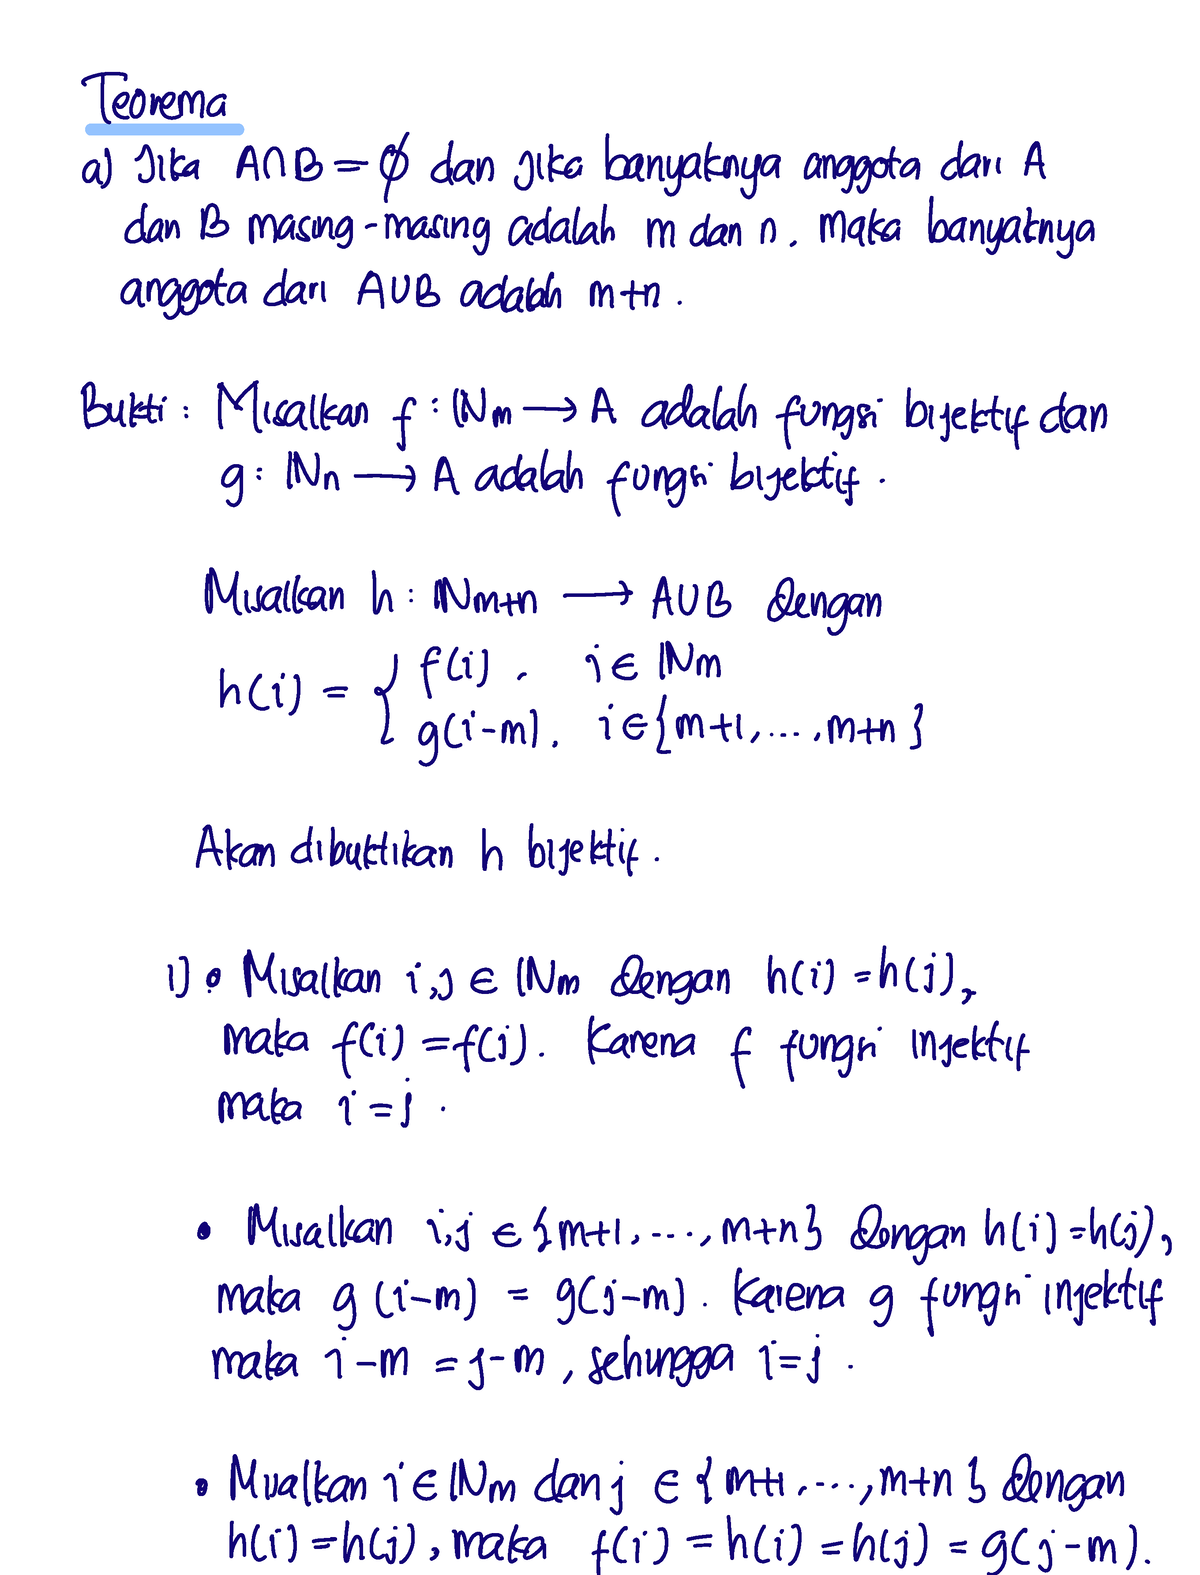 Teorema
a) Jika A∩B = ∅ dan jika banyaknya anggota dari A
dan B masing-masing adalah m dan n, maka banyaknya
anggota dari A∪B adalah m+n.
Bukti : Misalkan f : ℕm → A adalah fungsi bijektif dan
g : ℕn → A adalah fungsi bijektif.
Misalkan h : ℕm+n → A∪B dengan
h(i) = { f(i), i ∈ ℕm
g(i-m), i ∈ {m+1, ..., m+n}
Akan dibuktikan h bijektif.
1) • Misalkan i, j ∈ ℕm dengan h(i) = h(j),
maka f(i) = f(j). Karena f fungsi injektif
maka i = j.
• Misalkan i, j ∈ {m+1, ..., m+n} dengan h(i) = h(j),
maka g(i-m) = g(j-m). Karena g fungsi injektif
maka i-m = j-m, sehingga i=j.
• Misalkan i ∈ ℕm dan j ∈ {m+1, ..., m+n} dengan
h(i) = h(j), maka f(i) = h(i) = h(j) = g(j-m).